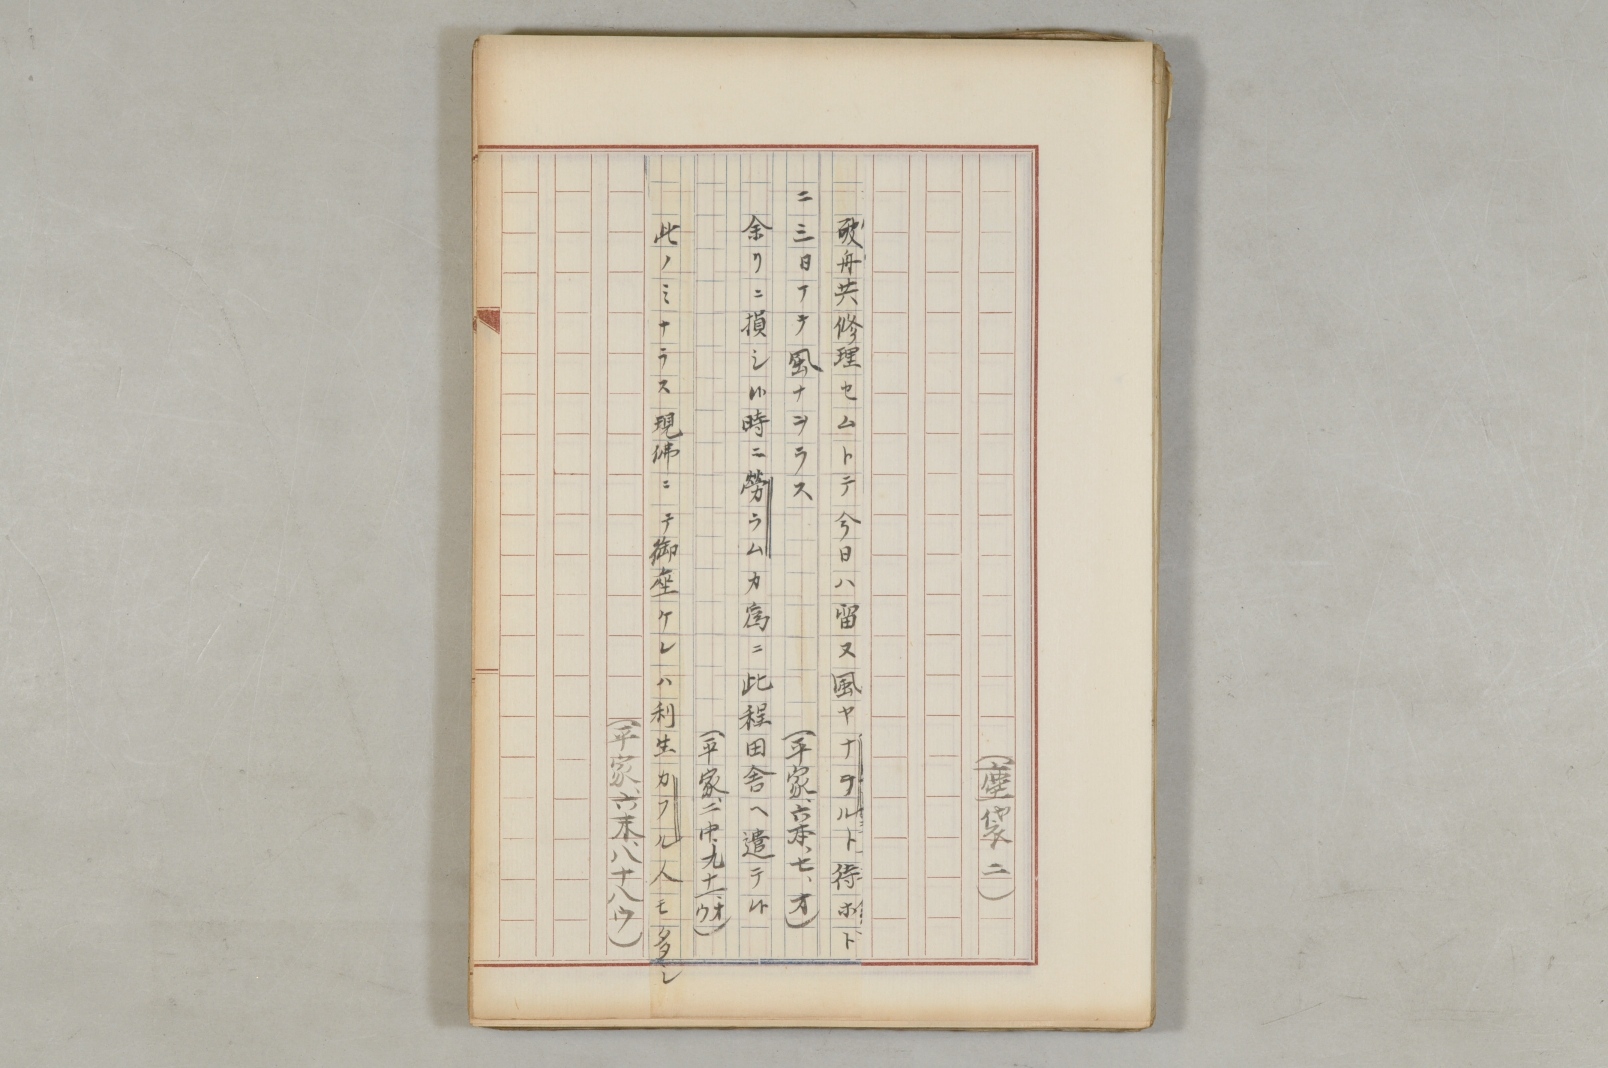 (塵袋二)
破舟共修理セムトテ今日ハ留ヌ風ヤナヲルト待ホド
ニ三日マテ風ナヲラス
(平家、六本、七、オ)
余リニ損シ候時ニ労ラムカ為ニ此程田舎ヘ遣テ候
(平家、二中、九十一、オウ)
此ノミナラス現仏ニテ御座ケレハ利生カフル人モ多シ
(平家、六末、八十八ウ)